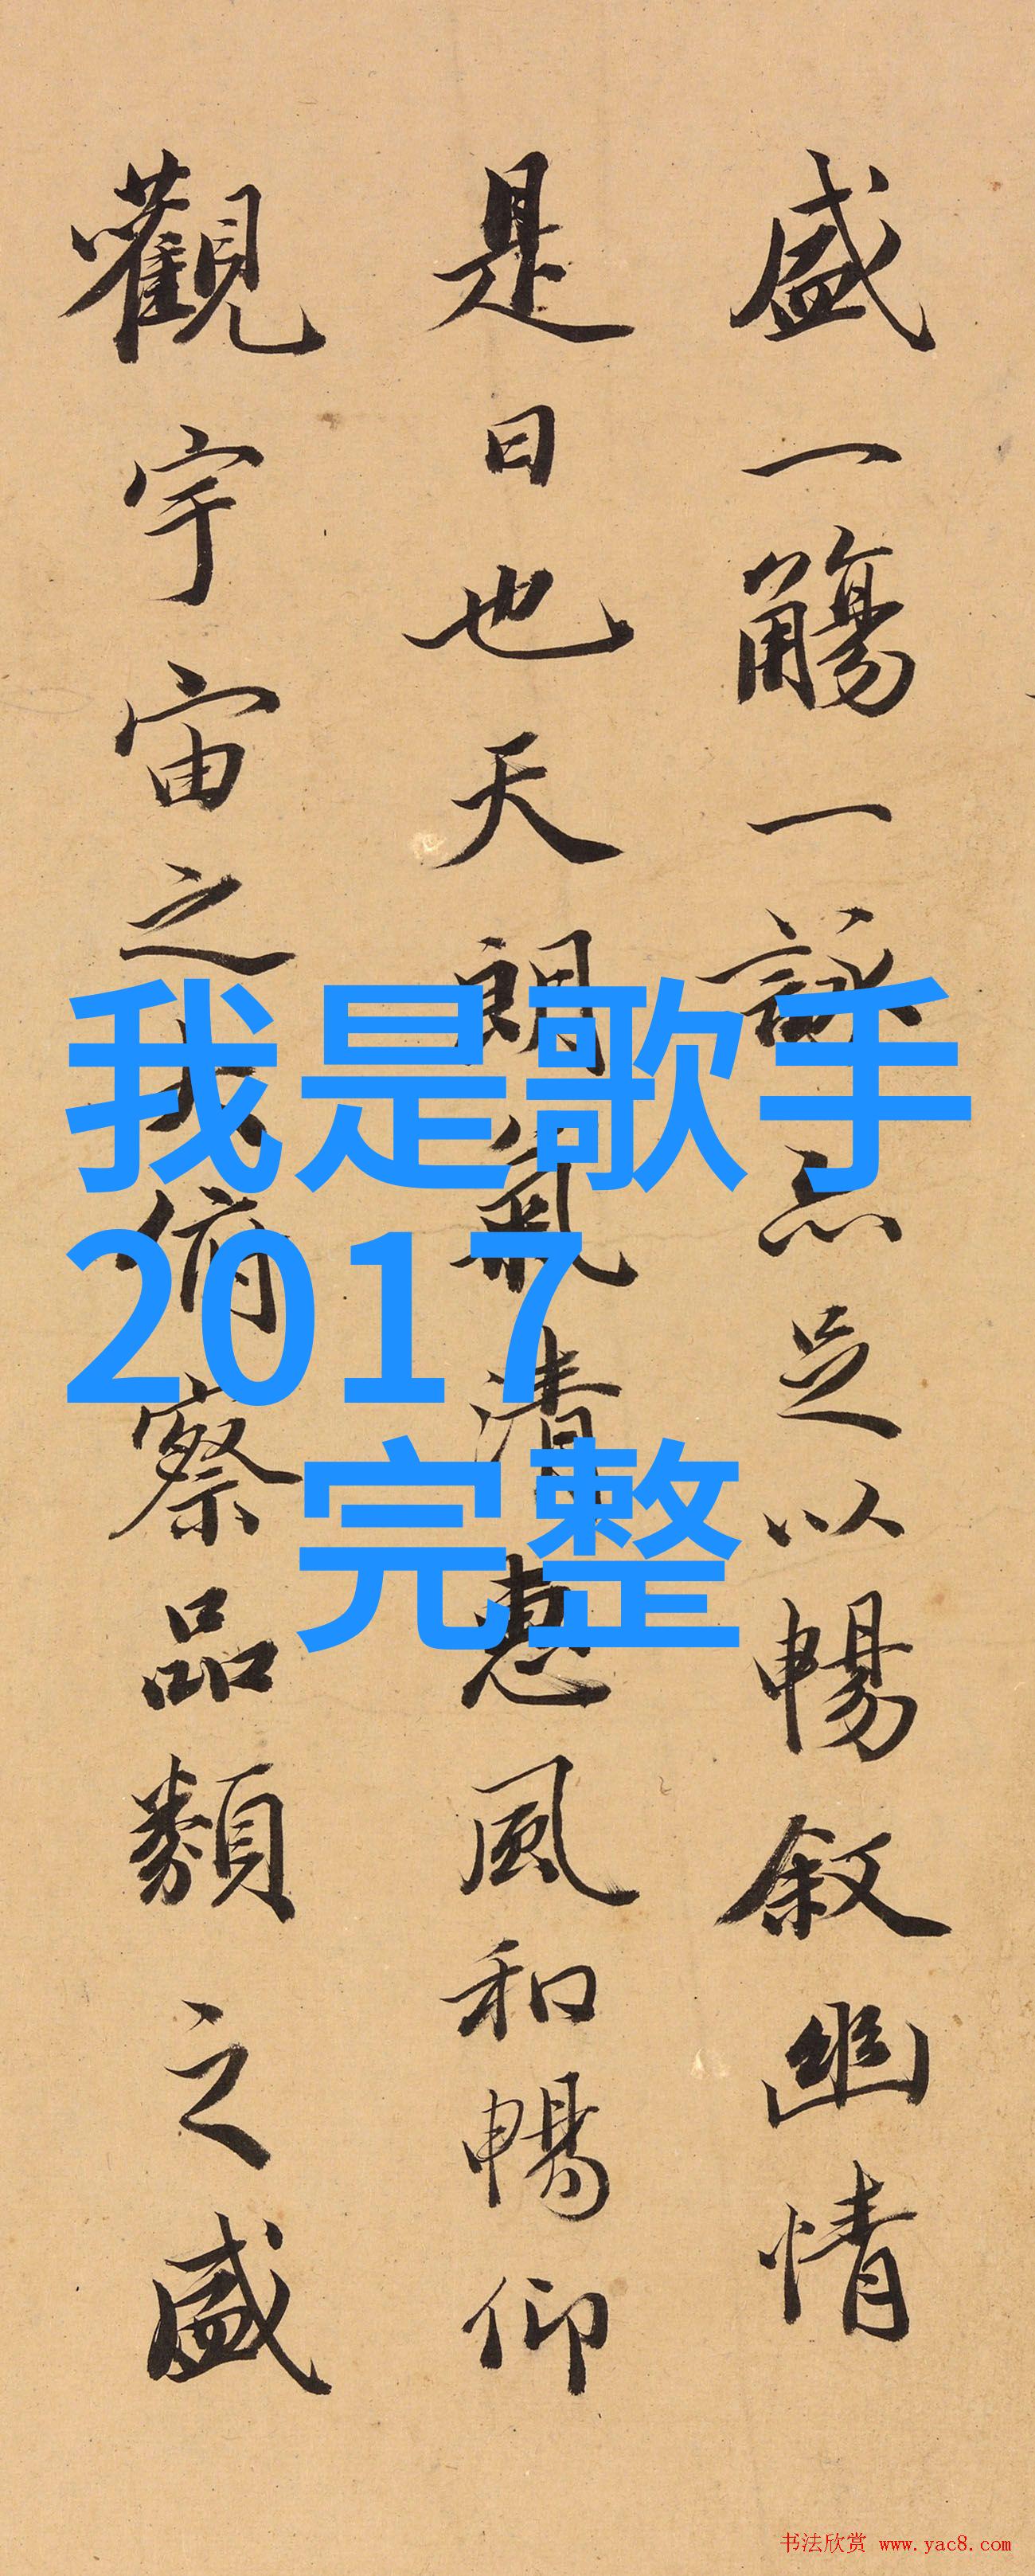 盛一觴一詠亦足以暢叙幽情
是日也天朗氣清惠風和暢仰
觀宇宙之大俯察品類之盛
我是歌手
2017
完整
书法欣赏 www.yac8.com